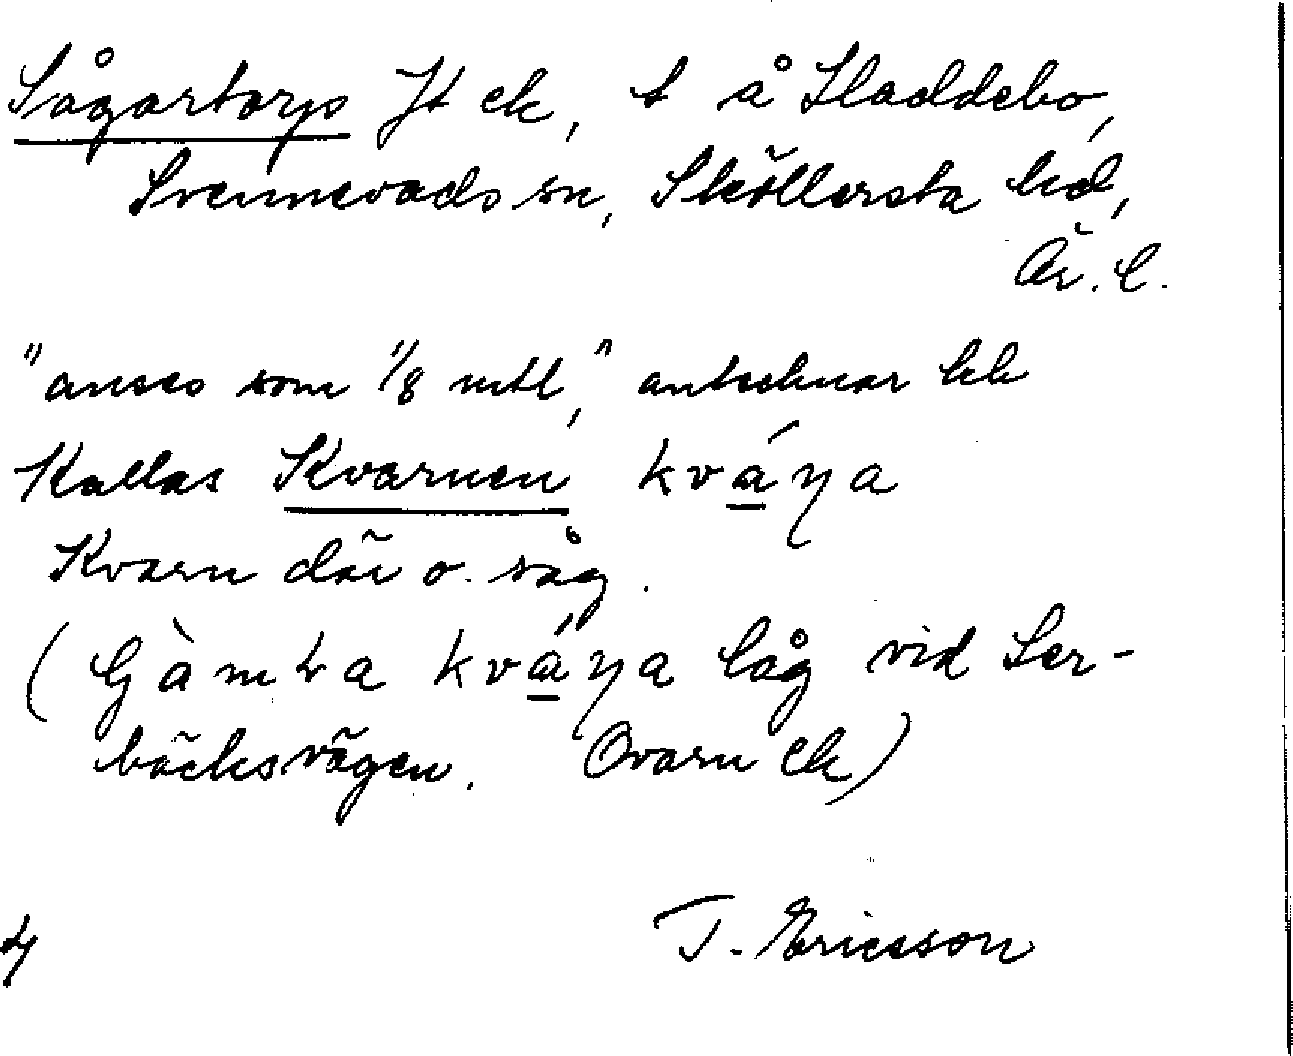 Sågartorp Jt ek, t å Sladdebo,
Svennevads sn, Sköllersta hd,
Ör. l.
"anses som 1/8 mtl," antecknar hk
Kallas Kvarnen kváŋa
Kvarn där o. såg.
(Gàmɫa kváŋa låg vid Ser-
bäcksvägen. Ovarn ek)
T. Ericsson